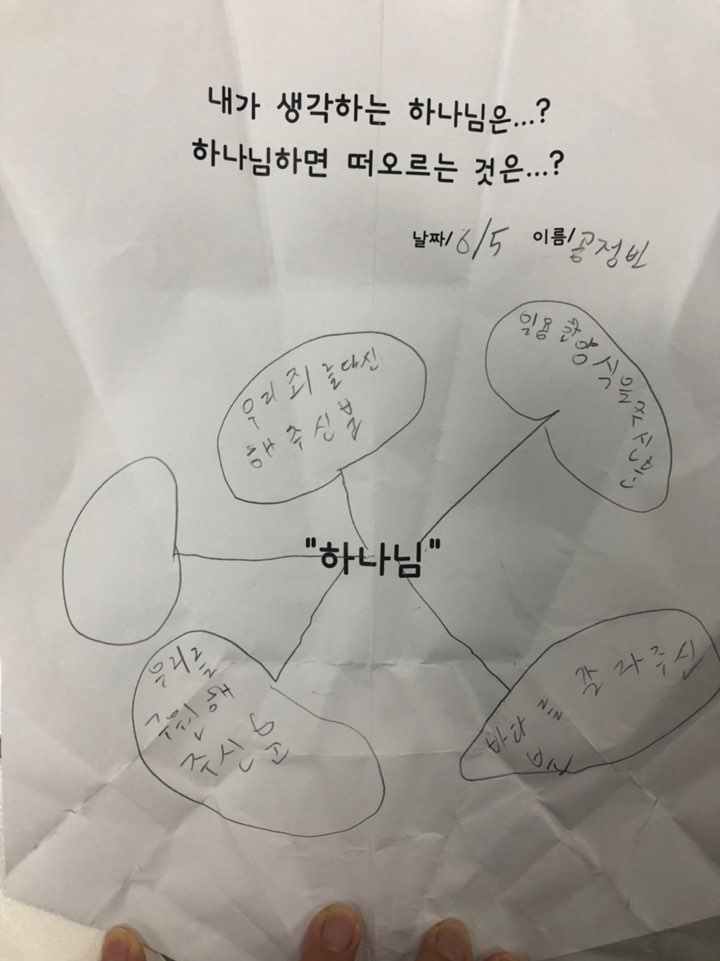 내가 생각하는 하나님은...?
하나님하면 떠오르는 것은...?
날짜/ 6/5 이름/ 공정빈
우리 죄를대신
해 주신분
일용할양식을주신분
"하나님"
우리를
구원해
주신 분
바다를 갈라주신
분